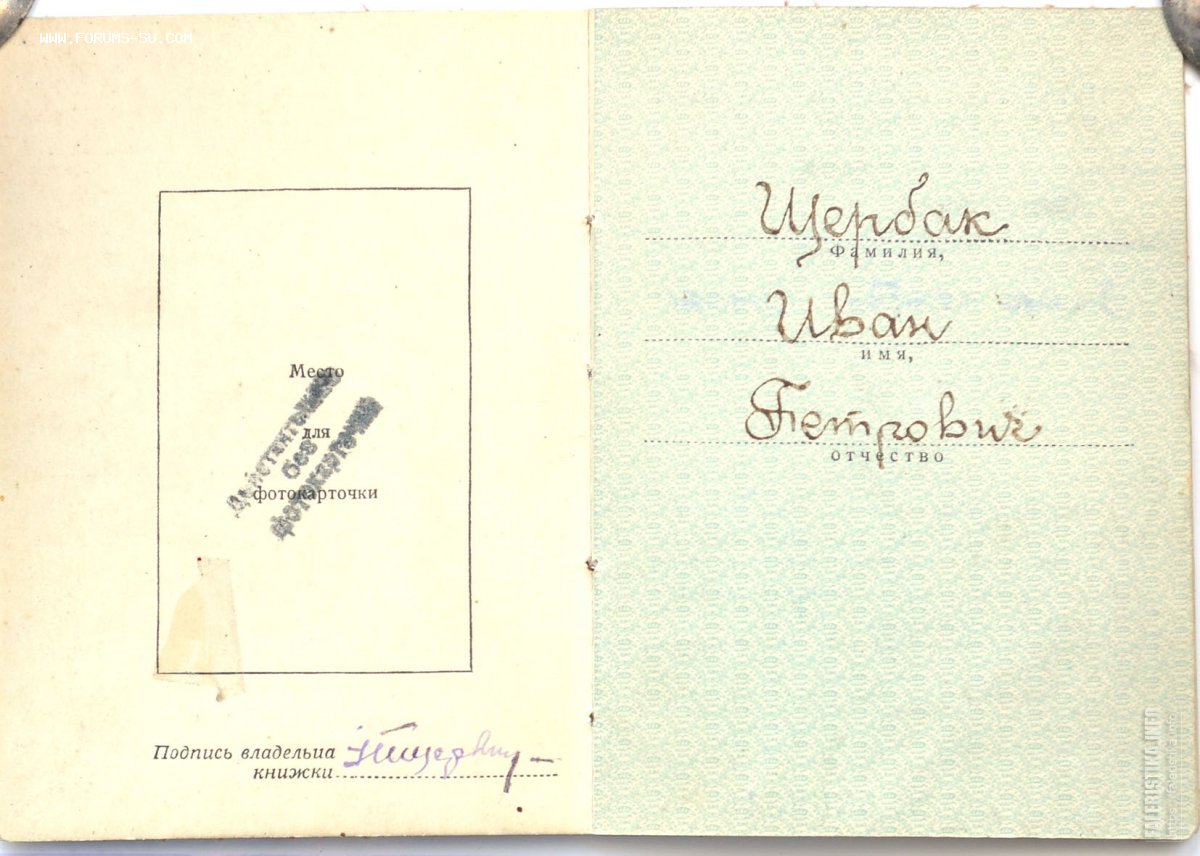 WWW.FORUMS-SU.COM
Место
для
фотокарточки
Действительно
без
фотокарточки
Подпись владельца
книжки
Щербак
Фамилия,
Иван
имя,
Петрович
отчество
FALERISTIKA.INFO